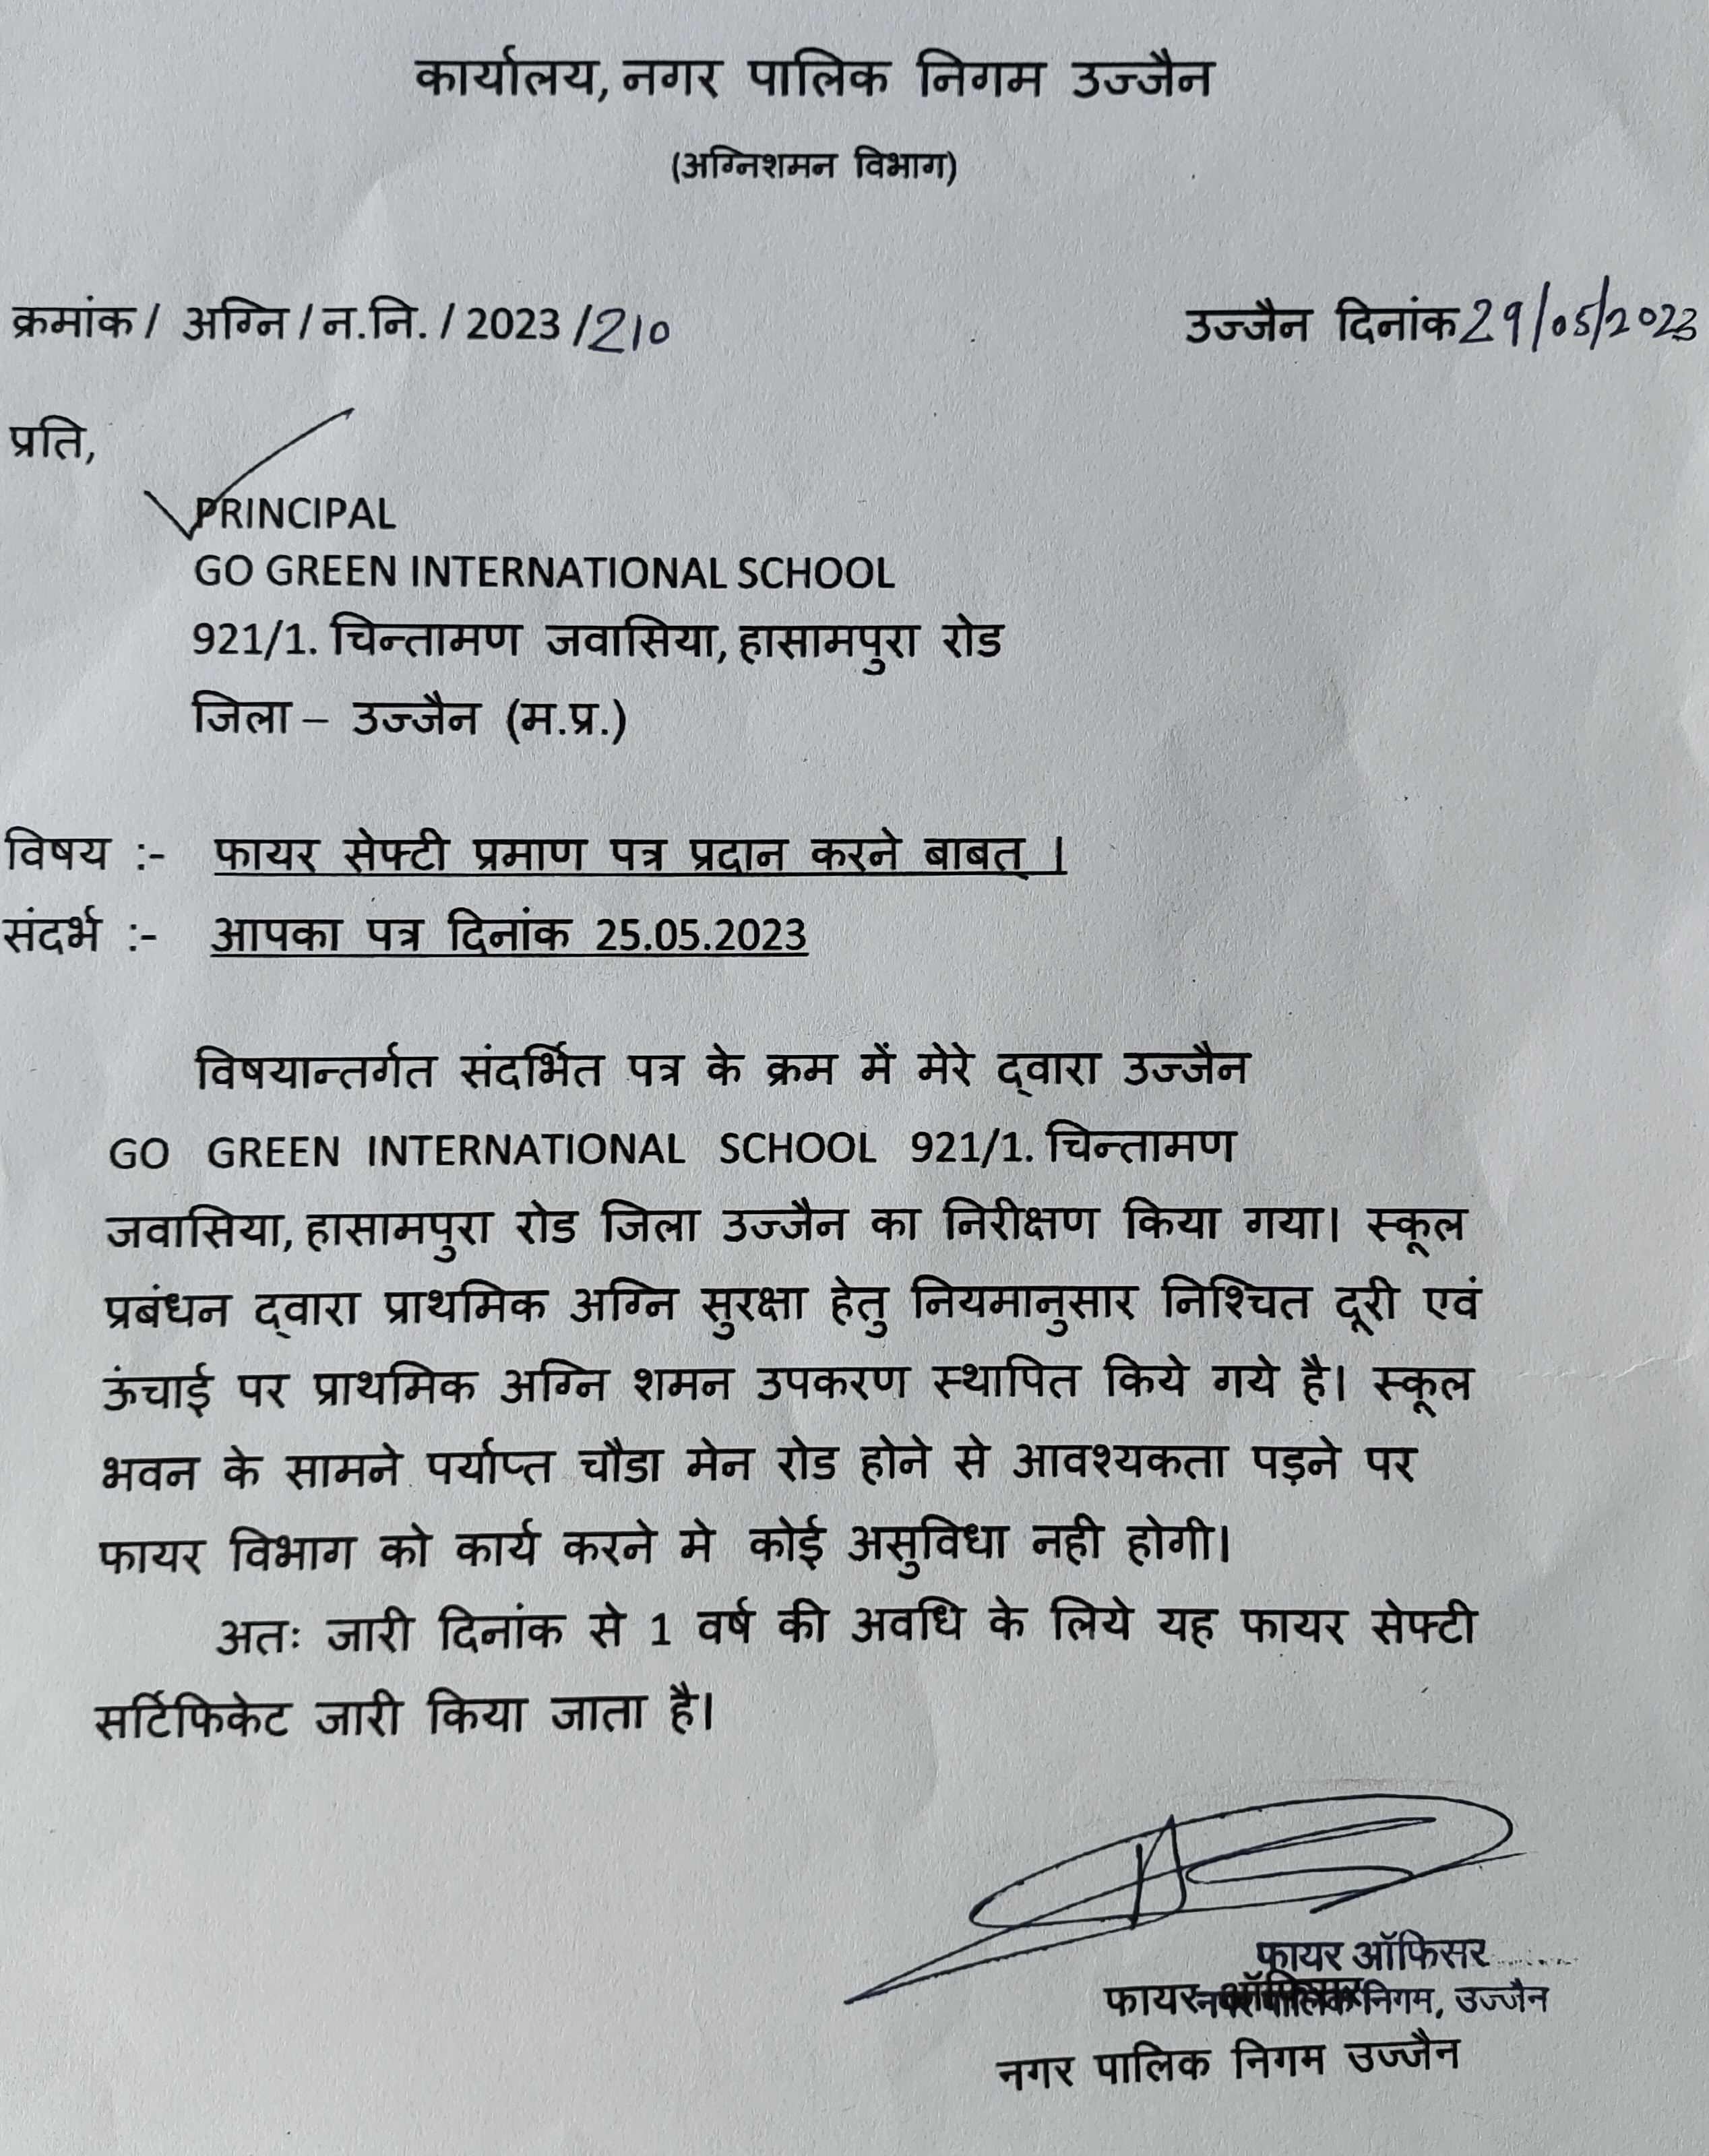 कार्यालय, नगर पालिक निगम उज्जैन
(अग्निशमन विभाग)
क्रमांक / अग्नि / न.नि. / 2023 /210
उज्जैन दिनांक 29/05/2023
प्रति,
PRINCIPAL
GO GREEN INTERNATIONAL SCHOOL
921/1. चिन्तामण जवासिया, हासामपुरा रोड
जिला – उज्जैन (म.प्र.)
विषय :- फायर सेफ्टी प्रमाण पत्र प्रदान करने बाबत् ।
संदर्भ :- आपका पत्र दिनांक 25.05.2023
विषयान्तर्गत संदर्भित पत्र के क्रम में मेरे द्वारा उज्जैन
GO GREEN INTERNATIONAL SCHOOL 921/1. चिन्तामण
जवासिया, हासामपुरा रोड जिला उज्जैन का निरीक्षण किया गया। स्कूल
प्रबंधन द्वारा प्राथमिक अग्नि सुरक्षा हेतु नियमानुसार निश्चित दूरी एवं
ऊंचाई पर प्राथमिक अग्नि शमन उपकरण स्थापित किये गये है। स्कूल
भवन के सामने पर्याप्त चौडा मेन रोड होने से आवश्यकता पड़ने पर
फायर विभाग को कार्य करने मे कोई असुविधा नही होगी।
अतः जारी दिनांक से 1 वर्ष की अवधि के लिये यह फायर सेफ्टी
सर्टिफिकेट जारी किया जाता है।
फायर ऑफिसर
नगर पालिक निगम, उज्जैन
फायर ऑफिसर
नगर पालिक निगम उज्जैन